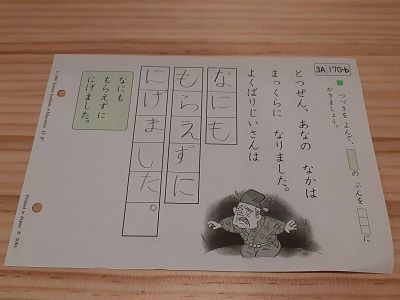 3A 170-b
■ つづきを よんで、
の ぶんを に
かきましょう。
とつぜん、あなの なかは
まっくらに なりました。
よくばりじいさんは
なにも
もらえずに
にげました。
なにも
もらえずに
にげました。